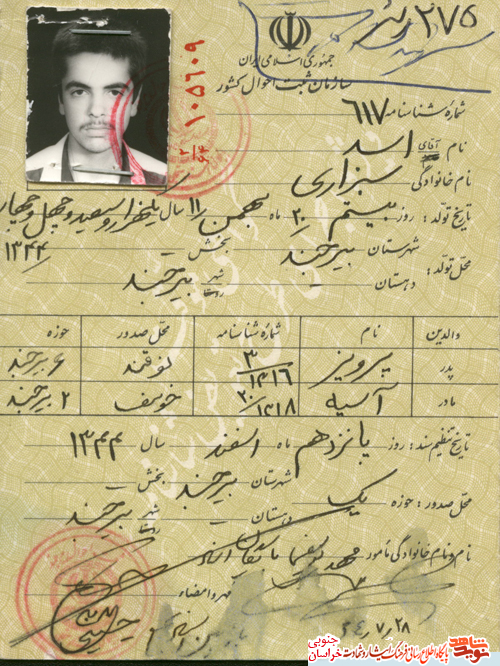 ۲۷۵
جمهوری اسلامی ایران
سازمان ثبت احوال کشور
۱۰۵۶۰۹
۲/۶۴
شمارهٔ شناسنامه ۶۱۷
نام آقای اسد
نام خانوادگی سبزاری
تاریخ تولد: روز بیستم ۲۰ ماه بهمن ۱۱ سال یکهزار و سیصد و چهل و چهار
۱۳۴۴
محل تولد: شهرستان بیرجند بخش
دهستان شهر روستا بیرجند
والدین نام شمارهٔ شناسنامه محل صدور حوزه
پدر پرویز ۳/۱۴۱۶ ۶ بیرجند
مادر آسیه ۲۰/۱۴۱۸ خوسف ۲ بیرجند
تاریخ تنظیم سند: روز پانزدهم ماه اسفند سال ۱۳۴۴
محل صدور: حوزه یک شهرستان بیرجند بخش
دهستان شهر روستا بیرجند
نام و نام خانوادگی مأمور
مهر و امضاء
۶۴،۷،۲۸
نوید شاهد
پایگاه اطلاع رسانی فرهنگ ایثار و شهادت خراسان جنوبی